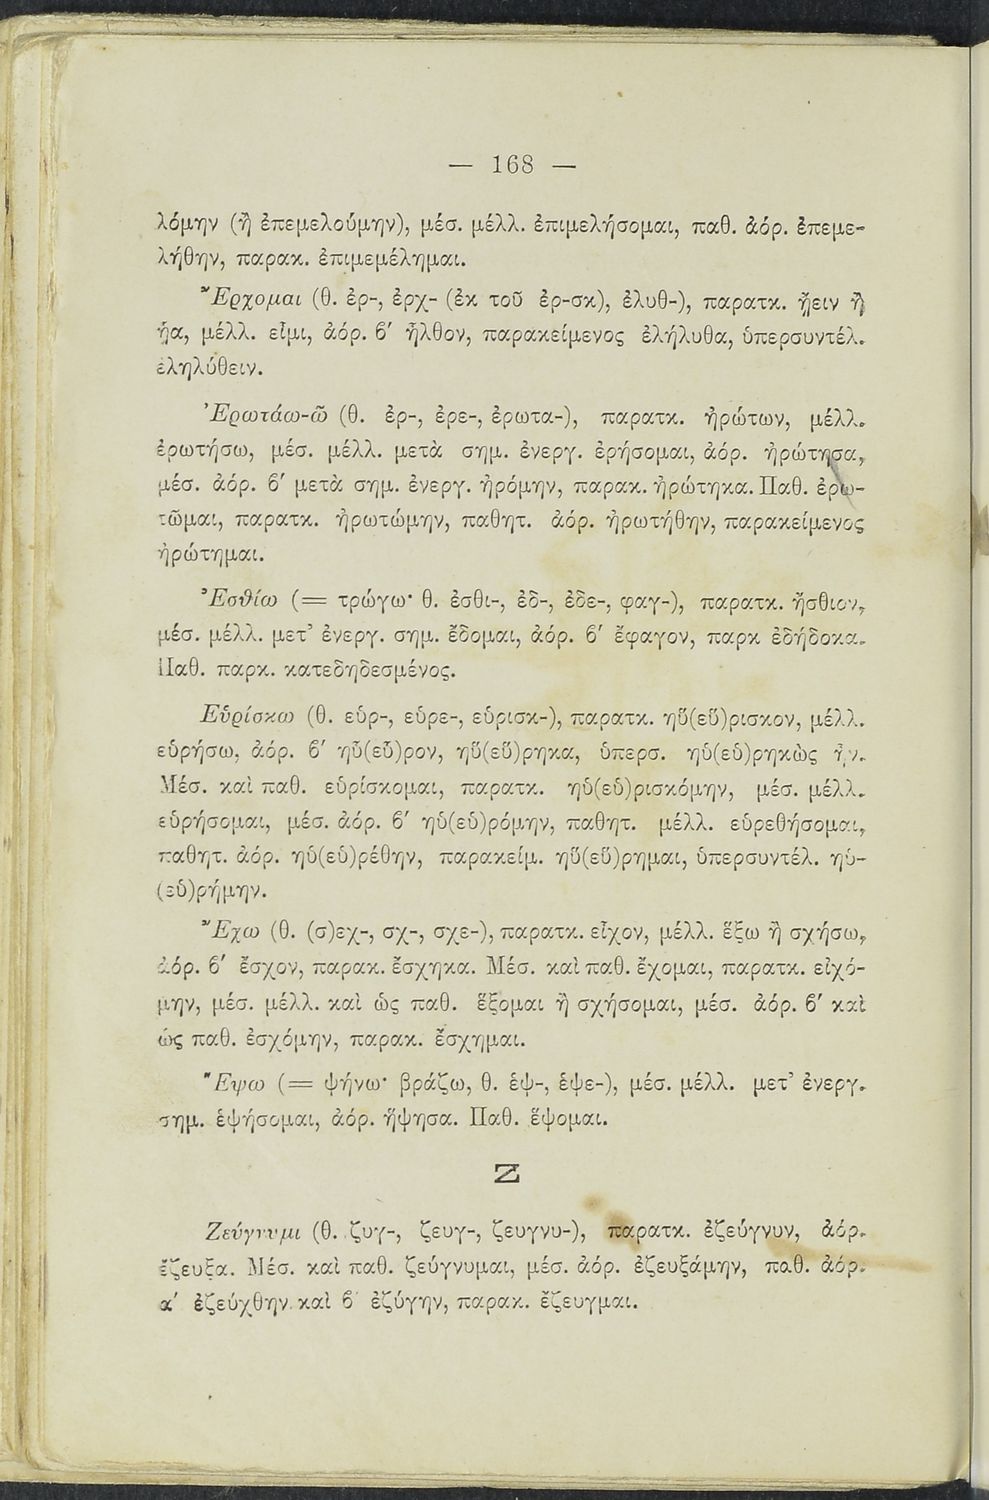 — 168 —
λόμην (ἢ ἐπεμελούμην), μέσ. μέλλ. ἐπιμελήσομαι, παθ. ἀόρ. ἐπεμε-
λήθην, παρακ. ἐπιμεμέλημαι.
Ἔρχομαι (θ. ἐρ-, ἐρχ- (ἐκ τοῦ ἐρ-σκ), ἐλυθ-), παρατκ. ᾔειν ἢ
ᾖα, μέλλ. εἶμι, ἀόρ. ϐ′ ἦλθον, παρακείμενος ἐλήλυθα, ὑπερσυντέλ.
ἐληλύθειν.
Ἐρωτάω-ῶ (θ. ἐρ-, ἐρε-, ἐρωτα-), παρατκ. ἠρώτων, μέλλ.
ἐρωτήσω, μέσ. μέλλ. μετὰ σημ. ἐνεργ. ἐρήσομαι, ἀόρ. ἠρώτησα,
μέσ. ἀόρ. ϐ′ μετὰ σημ. ἐνεργ. ἠρόμην, παρακ. ἠρώτηκα. Παθ. ἐρω-
τῶμαι, παρατκ. ἠρωτώμην, παθητ. ἀόρ. ἠρωτήθην, παρακείμενος
ἠρώτημαι.
Ἐσθίω (= τρώγω· θ. ἐσθι-, ἐδ-, ἐδε-, φαγ-), παρατκ. ἤσθιον,
μέσ. μέλλ. μετ’ ἐνεργ. σημ. ἔδομαι, ἀόρ. ϐ′ ἔφαγον, παρκ ἐδήδοκα.
Παθ. παρκ. κατεδηδεσμένος.
Εὑρίσκω (θ. εὑρ-, εὑρε-, εὑρισκ-), παρατκ. ηὕ(εὕ)ρισκον, μέλλ.
εὑρήσω, ἀόρ. ϐ′ ηὗ(εὗ)ρον, ηὕ(εὕ)ρηκα, ὑπερσ. ηὑ(εὑ)ρηκὼς ἦν.
Μέσ. καὶ παθ. εὑρίσκομαι, παρατκ. ηὑ(εὑ)ρισκόμην, μέσ. μέλλ.
εὑρήσομαι, μέσ. ἀόρ. ϐ′ ηὑ(εὑ)ρόμην, παθητ. μέλλ. εὑρεθήσομαι,
παθητ. ἀόρ. ηὑ(εὑ)ρέθην, παρακείμ. ηὕ(εὕ)ρημαι, ὑπερσυντέλ. ηὑ-
(εὑ)ρήμην.
Ἔχω (θ. (σ)εχ-, σχ-, σχε-), παρατκ. εἶχον, μέλλ. ἕξω ἢ σχήσω,
ἀόρ. ϐ′ ἔσχον, παρακ. ἔσχηκα. Μέσ. καὶ παθ. ἔχομαι, παρατκ. εἰχό-
μην, μέσ. μέλλ. καὶ ὡς παθ. ἕξομαι ἢ σχήσομαι, μέσ. ἀόρ. ϐ′ καὶ
ὡς παθ. ἐσχόμην, παρακ. ἔσχημαι.
Ἕψω (= ψήνω· βράζω, θ. ἑψ-, ἑψε-), μέσ. μέλλ. μετ’ ἐνεργ.
σημ. ἑψήσομαι, ἀόρ. ἥψησα. Παθ. ἕψομαι.
Ζ
Ζεύγνυμι (θ. ζυγ-, ζευγ-, ζευγνυ-), παρατκ. ἐζεύγνυν, ἀόρ.
ἔζευξα. Μέσ. καὶ παθ. ζεύγνυμαι, μέσ. ἀόρ. ἐζευξάμην, παθ. ἀόρ.
α′ ἐζεύχθην καὶ ϐ′ ἐζύγην, παρακ. ἔζευγμαι.